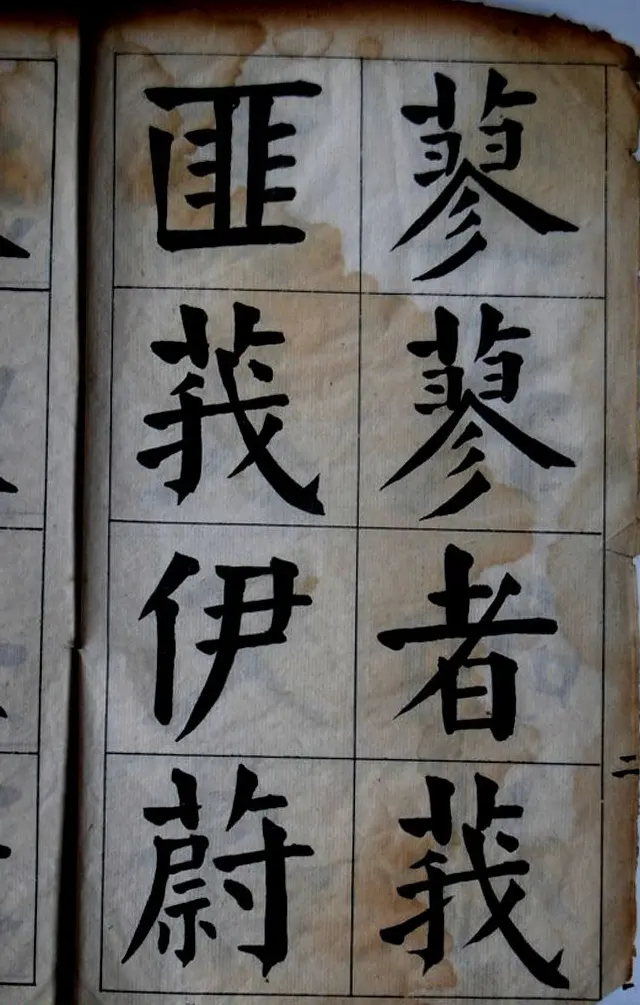 蓼蓼者莪
匪莪伊蔚
二